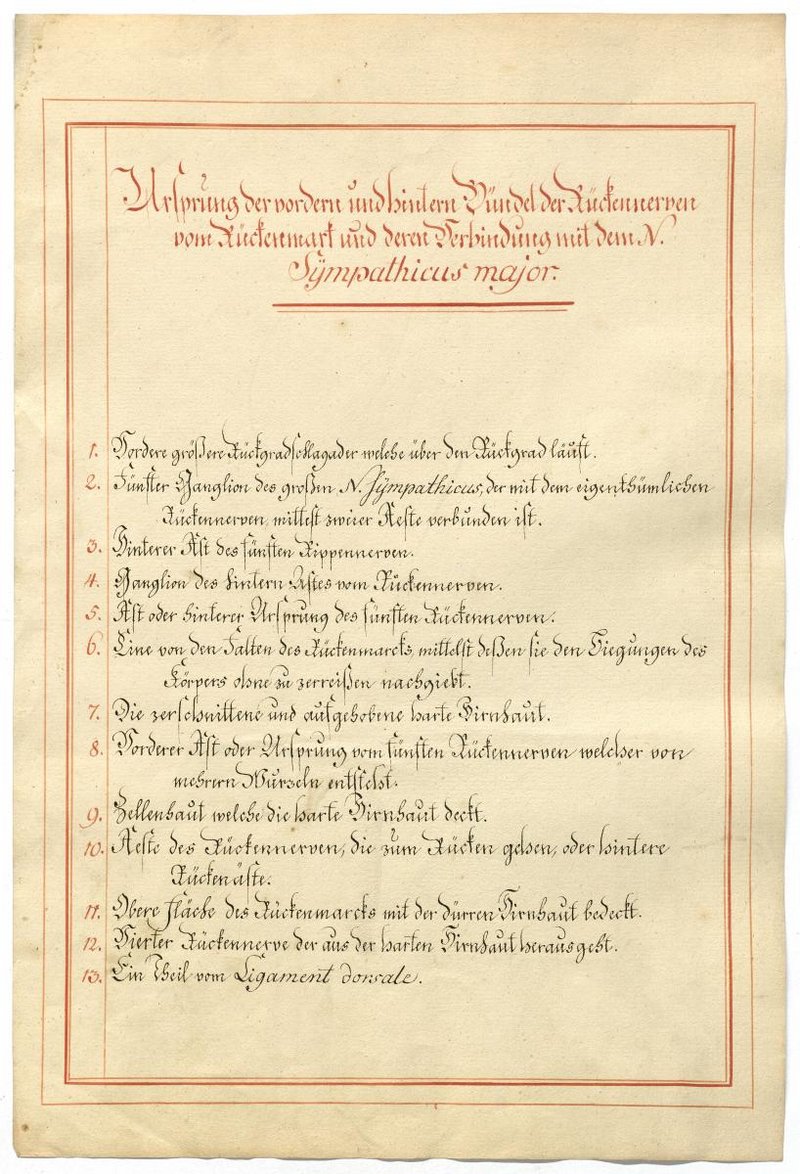 Ursprung der vordern und hintern Bündel der Rückennerven
vom Rückenmark und deren Verbindung mit dem N.
Sÿmpathicus major.
1. Vordere größere Rückgradschlagader welche über den Rückgrad läuft.
2. Fünfter Ganglion des großen N. Sÿmpathicus, der mit dem eigenthümlichen
Rückennerven, mittelst zweier Aeste verbunden ist.
3. Hinterer Ast des fünften Rippennerven.
4. Ganglion des hintern Astes vom Rückennerven.
5. Ast oder hinterer Ursprung des fünften Rückennerven.
6. Eine von den Falten des Rückenmarcks, mittelst deßen sie den Biegungen des
Körpers ohne zu zerreißen nachgiebt.
7. Die zerschnittene und aufgehobene harte Hirnhaut.
8. Vorderer Ast oder Ursprung vom fünften Rückennerven welcher von
mehrern Wurzeln entsteht.
9. Zellenhaut welche die harte Hirnhaut deckt.
10. Aeste des Rückennerven, die zum Rücken gehen, oder hintere
Rückenäste.
11. Obere Fläche des Rückenmarcks mit der dürren Hirnhaut bedeckt.
12. Vierter Rückennerve der aus der harten Hirnhaut herausgeht.
13. Ein Theil vom Ligament dorsale.